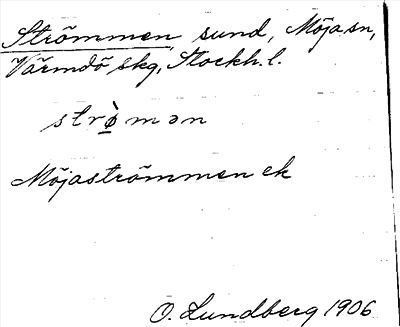 Strömmen, sund, Möja sn,
Värmdö skg, Stockh. l.
strø̀mən
Möjaströmmen ek
O. Lundberg 1906